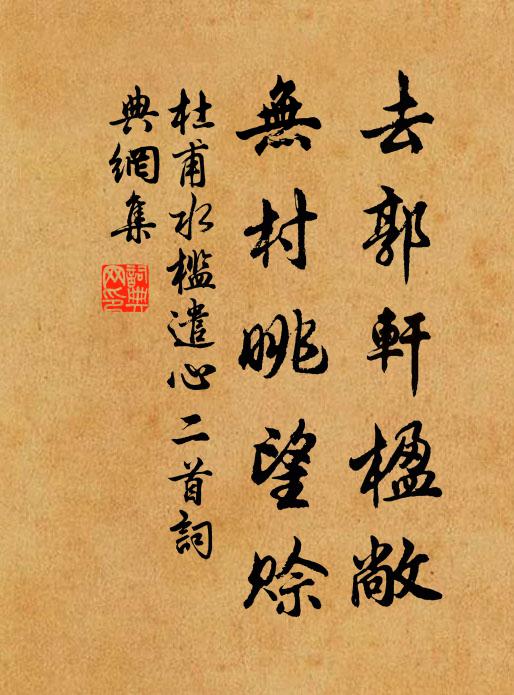 去郭軒楹敞
無村眺望賒
杜甫水檻遣心二首詞
典網集
詞典
网印